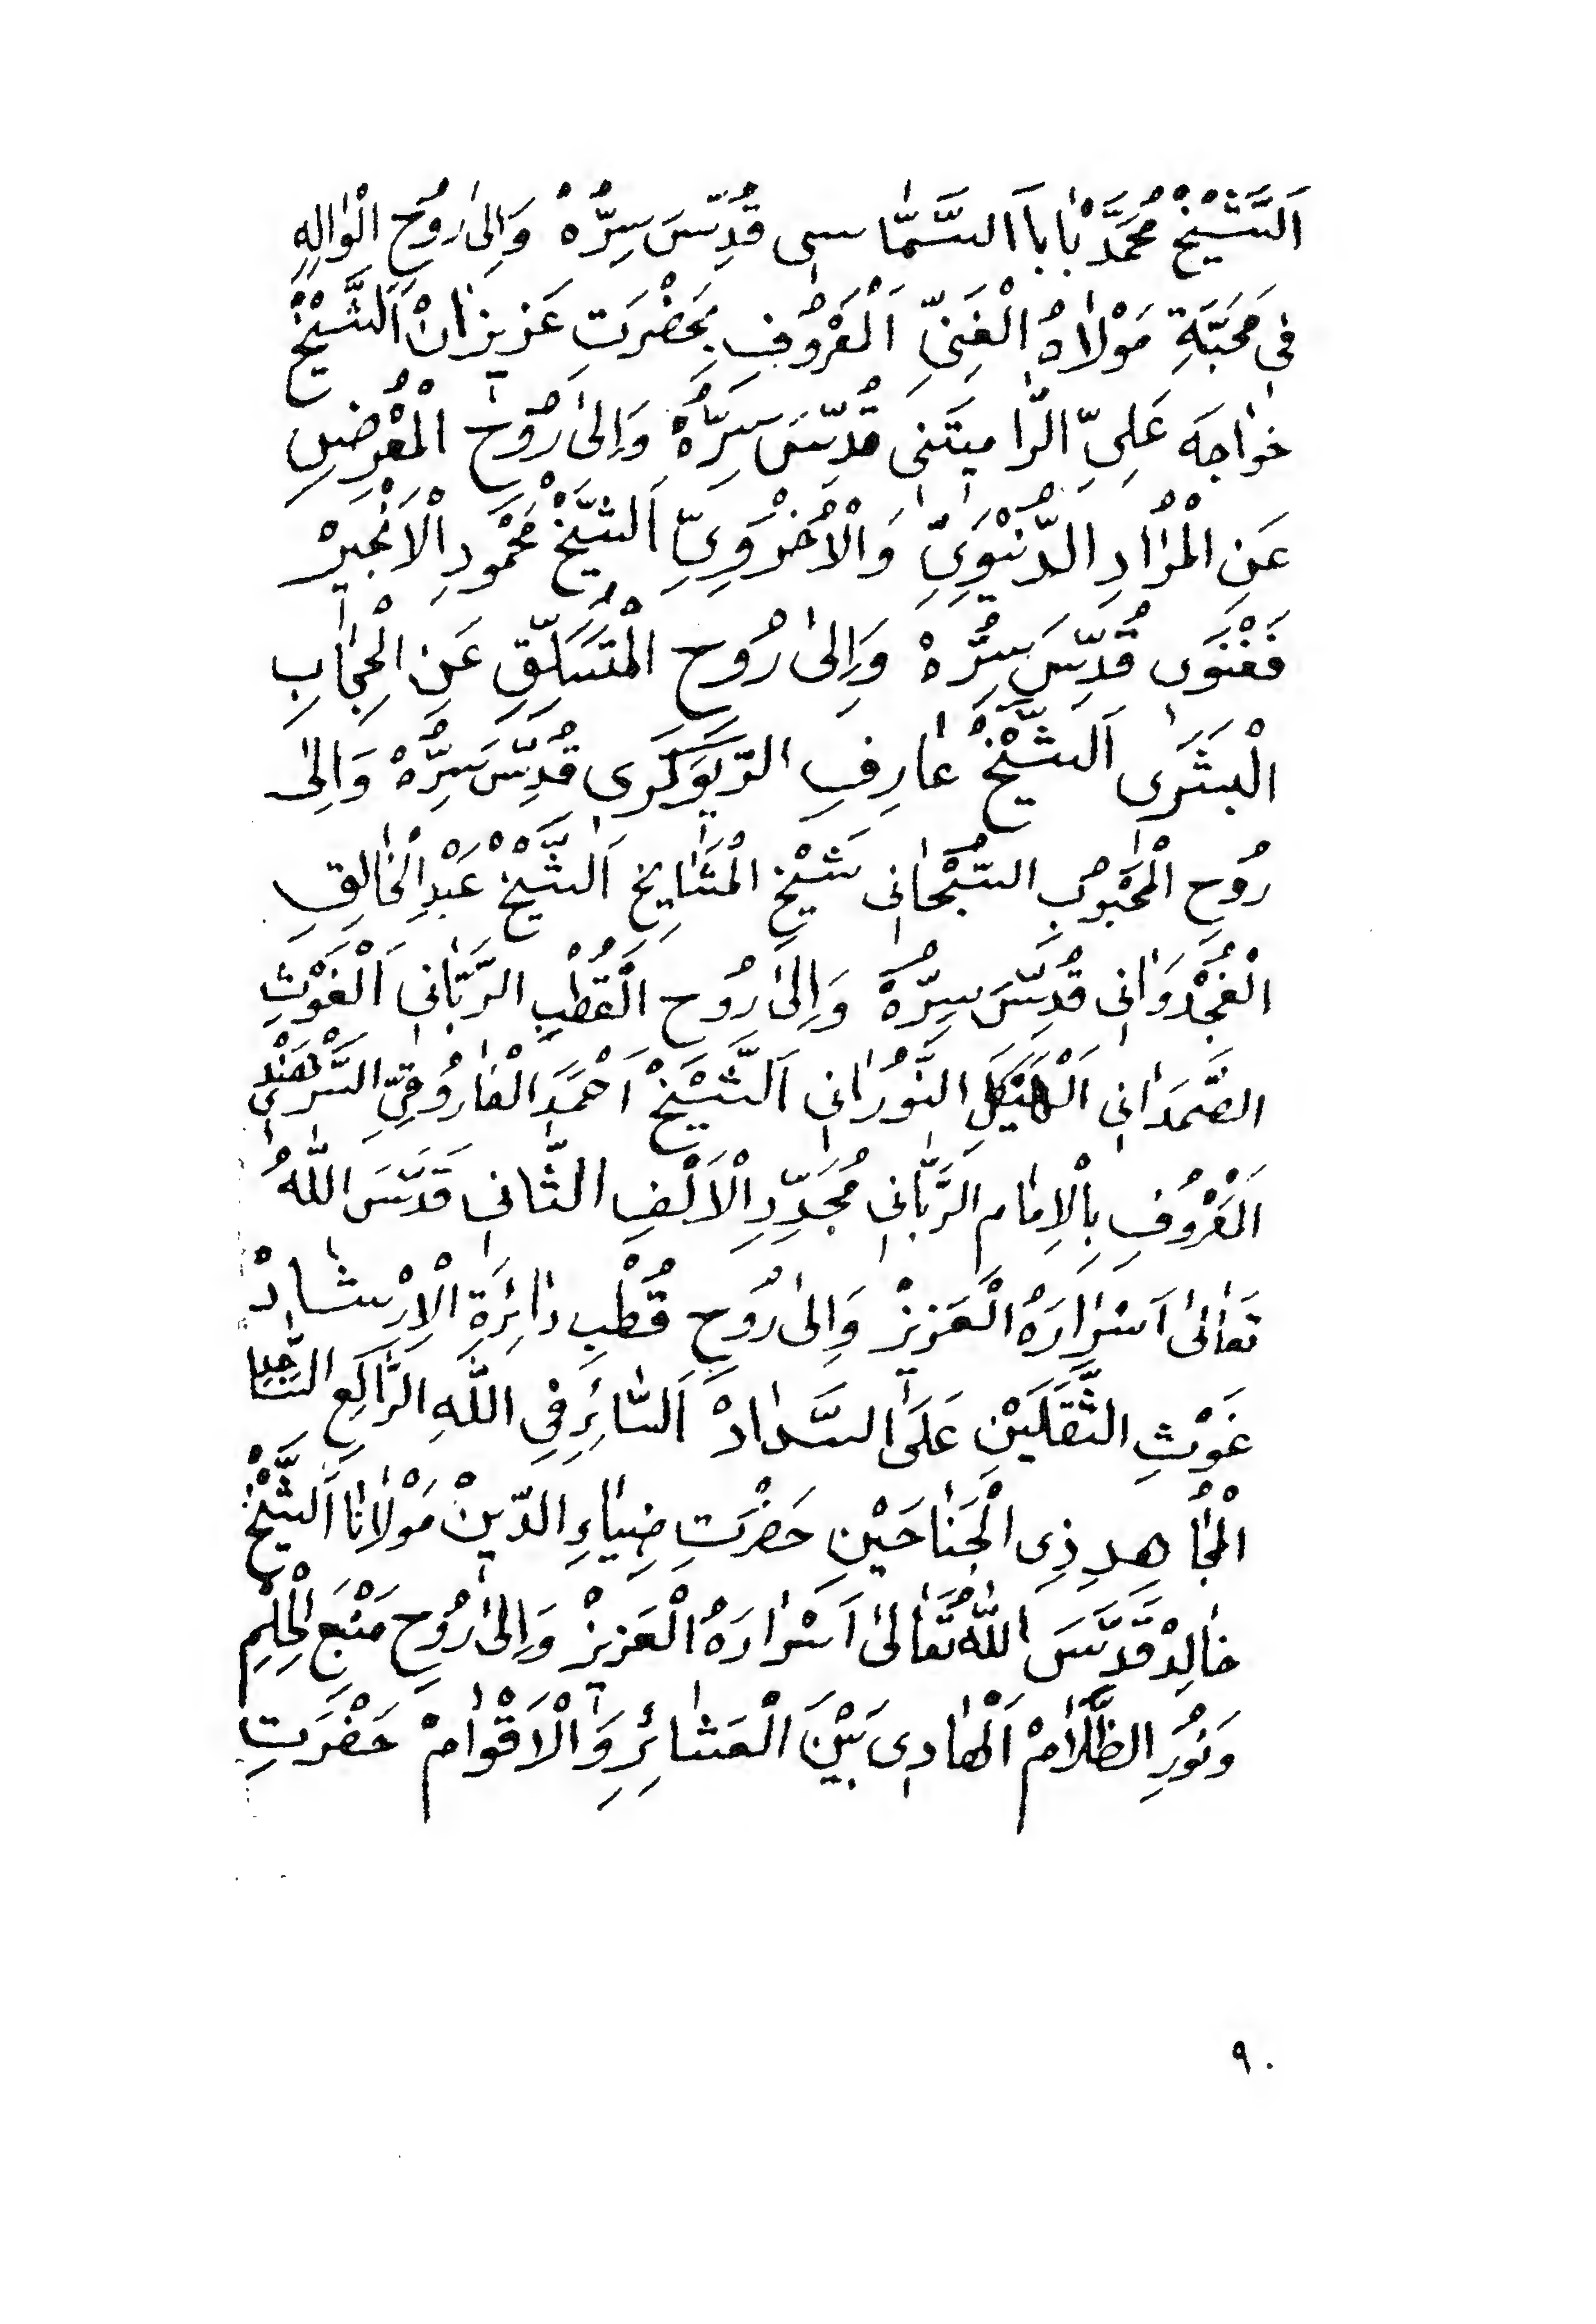 اَلشَّيْخْ مُحَمَّدْ بَابَا اَلسَّمَّاسِى قُدِّسَ سِرُّهْ وَاِلىٰ رُوحِ الْوَالِهِ
فِى مَحَبَّةِ مَوْلَاهُ الْغَنِىِّ اَلْمَعْرُوفِ بِحَضْرَتِ عَزِيزَانْ اَلشَّيْخْ
خَوٰاجَه عَلِىِّ الرَّامِيتَنِى قُدِّسَ سِرُّهْ وَاِلىٰ رُوحِ الْمُعْرِضِ
عَنِ الْمُرَادِ الدُّنْيَوِىِّ وَالْاُخْرَوِىِّ اَلشَّيْخْ مَحْمُودِ الْاَنْجِيرْ
فَغْنَوِى قُدِّسَ سِرُّهْ وَاِلىٰ رُوحِ الْمُتَسَلِّقِ عَنِ الْحِجَابِ
الْبَشَرِى اَلشَّيْخْ عَارِفِ الرِّيوَكَرِى قُدِّسَ سِرُّهْ وَاِلىٰ
رُوحِ الْمَحْبُوبِ السُّبْحَانِى شَيْخِ الْمَشَايِخِ اَلشَّيْخْ عَبْدِ الْخَالِقِ
الْغُجْدَوَانِى قُدِّسَ سِرُّهْ وَاِلىٰ رُوحِ الْقُطْبِ الرَّبَّانِى اَلْغَوْثِ
الصَّمَدَانِى اَلْهَيْكَلِ النُّورَانِى اَلشَّيْخْ اَحْمَدَ الْفَارُوقِىِّ السَّرْهَنْدِى
اَلْمَعْرُوفِ بِالْاِمَامِ الرَّبَّانِى مُجَدِّدِ الْاَلْفِ الثَّانِى قَدَّسَ اللّٰهُ
تَعَالىٰ اَسْرَارَهُ الْعَزِيزْ وَاِلىٰ رُوحِ قُطْبِ دَائِرَةِ الْاِرْشَادْ
غَوْثِ الثَّقَلَيْنِ عَلَى السَّدَادْ اَلسَّائِرِ فِى اللّٰهِ الرَّاكِعِ السَّاجِدِ
الْمُجَاهِدِ ذِى الْجَنَاحَيْنِ حَضْرَتِ ضِيَاءِ الدِّينْ مَوْلَانَا اَلشَّيْخْ
خَالِدْ قَدَّسَ اللّٰهُ تَعَالىٰ اَسْرَارَهُ الْعَزِيزْ وَاِلىٰ رُوحِ مَنْبَعِ الْحِلْمِ
وَنُورِ الظَّلَامْ اَلْهَادِى بَيْنَ الْعَشَائِرِ وَالْاَقْوَامْ حَضْرَتِ
٩٠